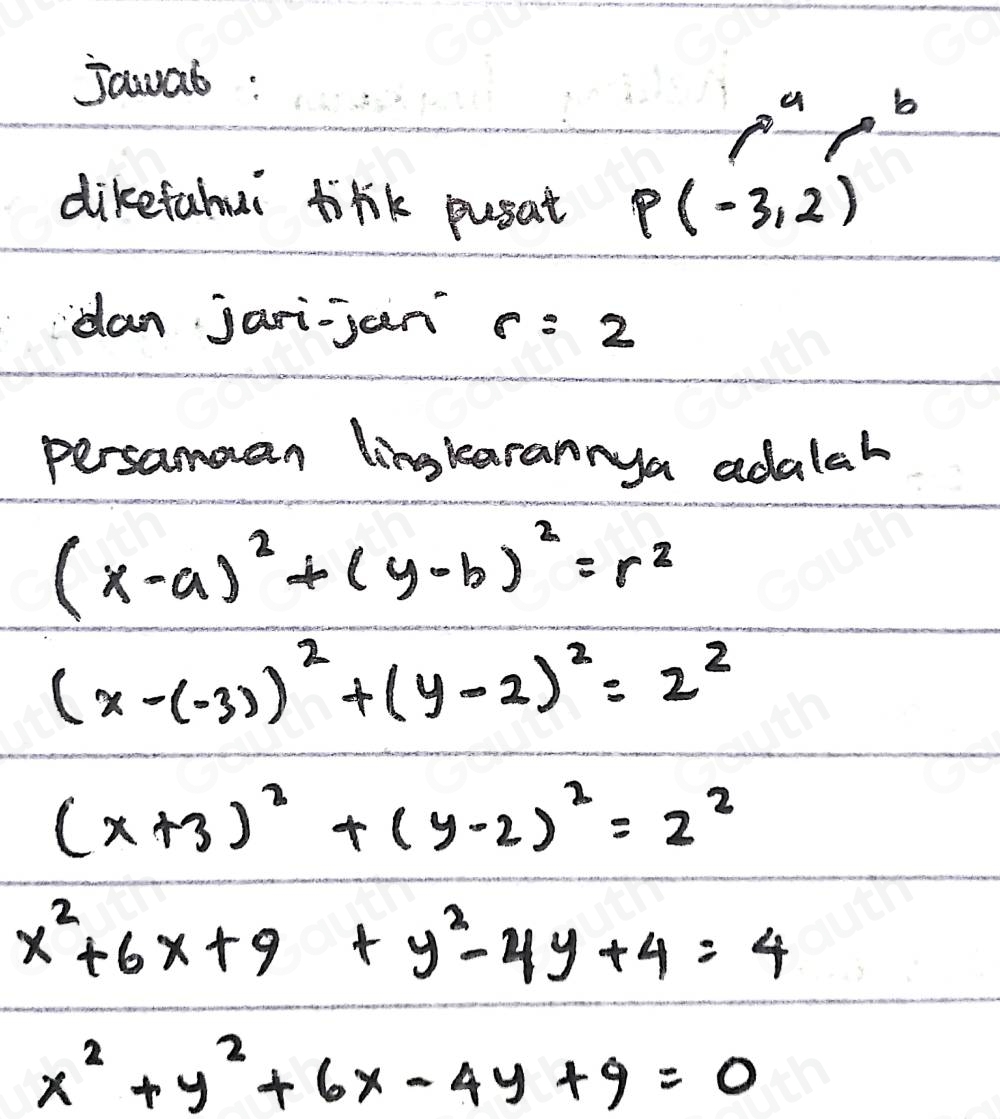 Jawab :
a b
diketahui titik pusat P(-3,2)
dan jari-jari r = 2
persamaan lingkarannya adalah
(x-a)² + (y-b)² = r²
(x-(-3))² + (y-2)² = 2²
(x+3)² + (y-2)² = 2²
x² + 6x + 9 + y² - 4y + 4 = 4
x² + y² + 6x - 4y + 9 = 0